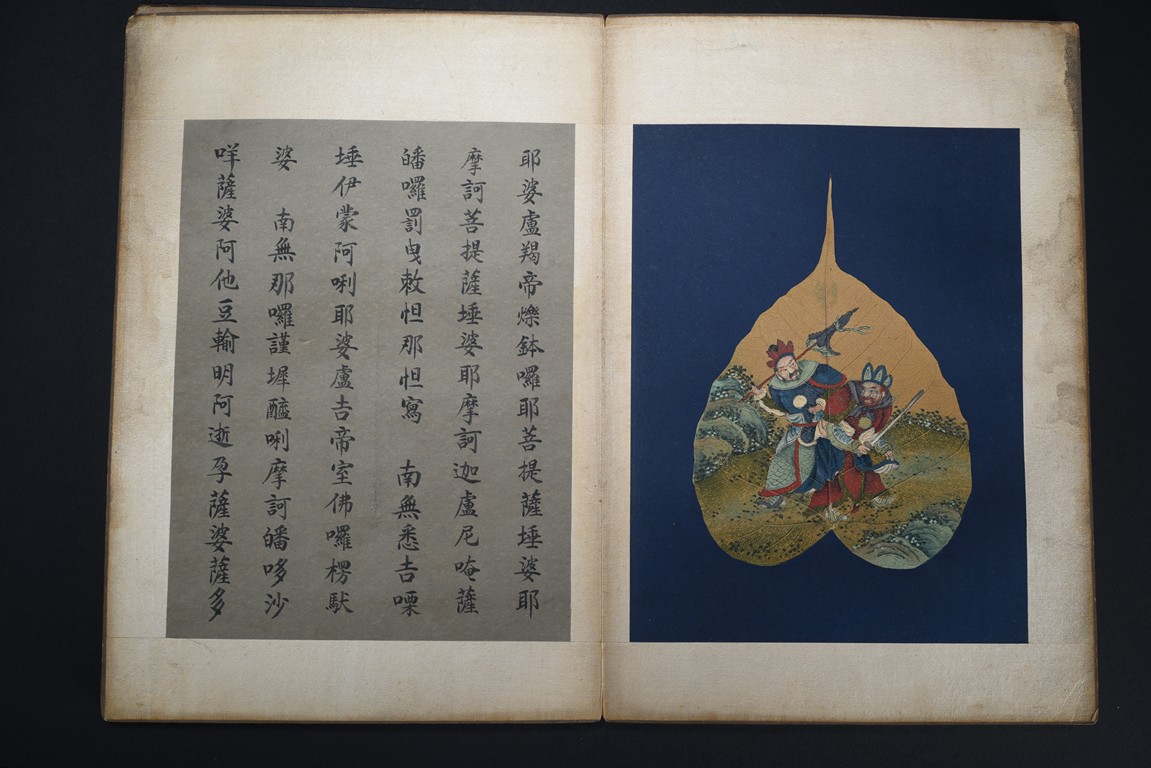 耶婆盧羯帝爍鉢囉耶菩提薩埵婆耶
摩訶菩提薩埵婆耶摩訶迦盧尼唵薩
皤囉罰曳敕怛那怛寫　南無悉吉㗚
埵伊蒙阿唎耶婆盧吉帝室佛囉楞馱
婆　南無那囉謹墀醯唎摩訶皤哆沙
咩薩婆阿他豆輸明阿逝孕薩婆薩多